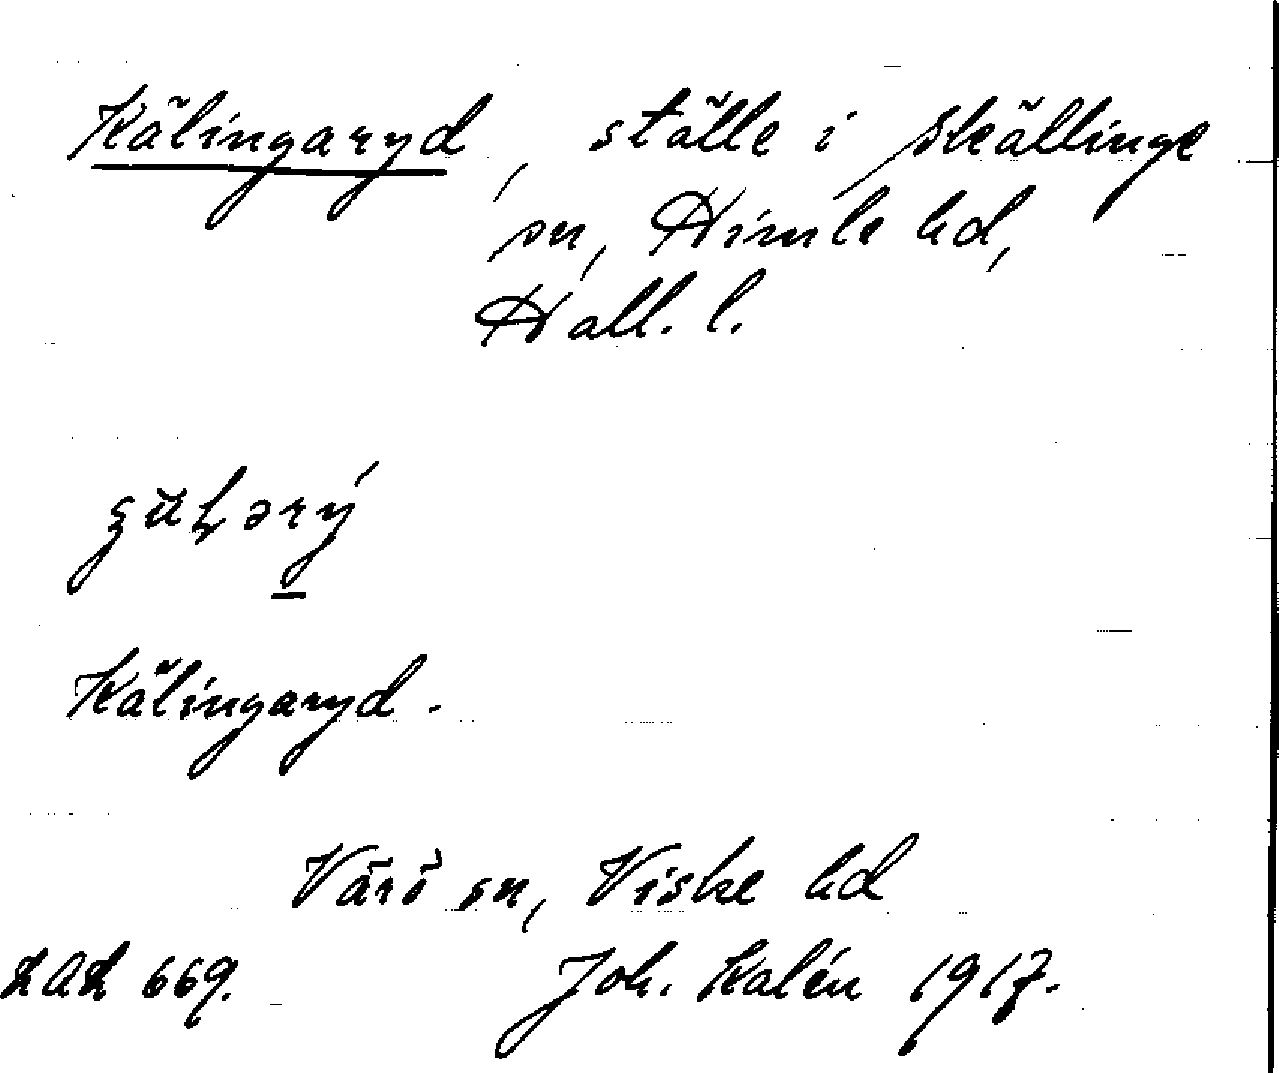 Kälingaryd, ställe i Skällinge
sn, Himle hd,
Hall. l.
Kälingaryd.
Värö sn, Viske hd
LAL 669. Joh. Kalén 1917.